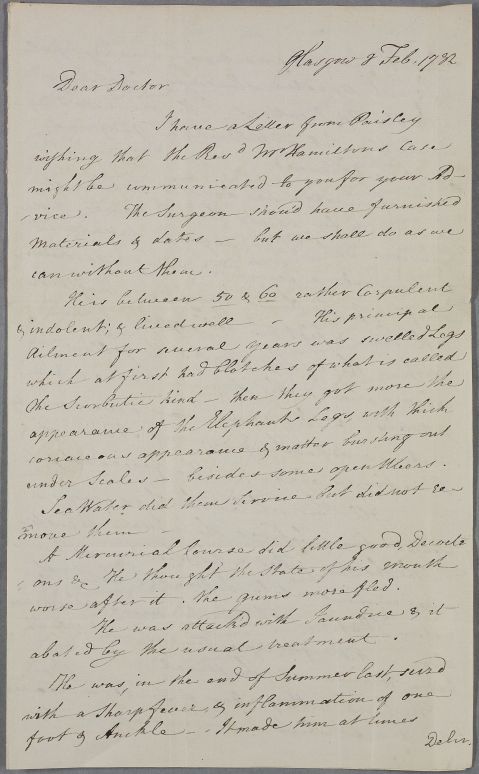 Glasgow 8 Feb. 1782
Dear Doctor
I have a Letter from Paisley
wishing that the Revd Mr Hamiltons Case
might be communicated to you for your Ad-
vice. The Surgeon should have furnished
Materials & dates — but we shall do as we
can without them.
He is between 50 & 60 rather Corpulent
& indolent; & lived well — His principal
Ailment for several years was swelled Legs
which at first had blotches of what is called
the Scorbutic kind — then they got more the
appearance of the Elephants Legs, with thick
coriaceous appearance & matter bursting out
under Scales — besides some open Ulcers.
Sea Water did them Service but did not re-
move them —
A Mercurial Course did little good, Decocti
ons &c He thought the State of his mouth
worse after it. the gums more fled.
He was attackd with Jaundice & it
abated by the usual treatment.
He was, in the end of Summer last, seizd
with a Sharp fever, & inflammation of one
foot & Anckle — It made him at times
Delir.